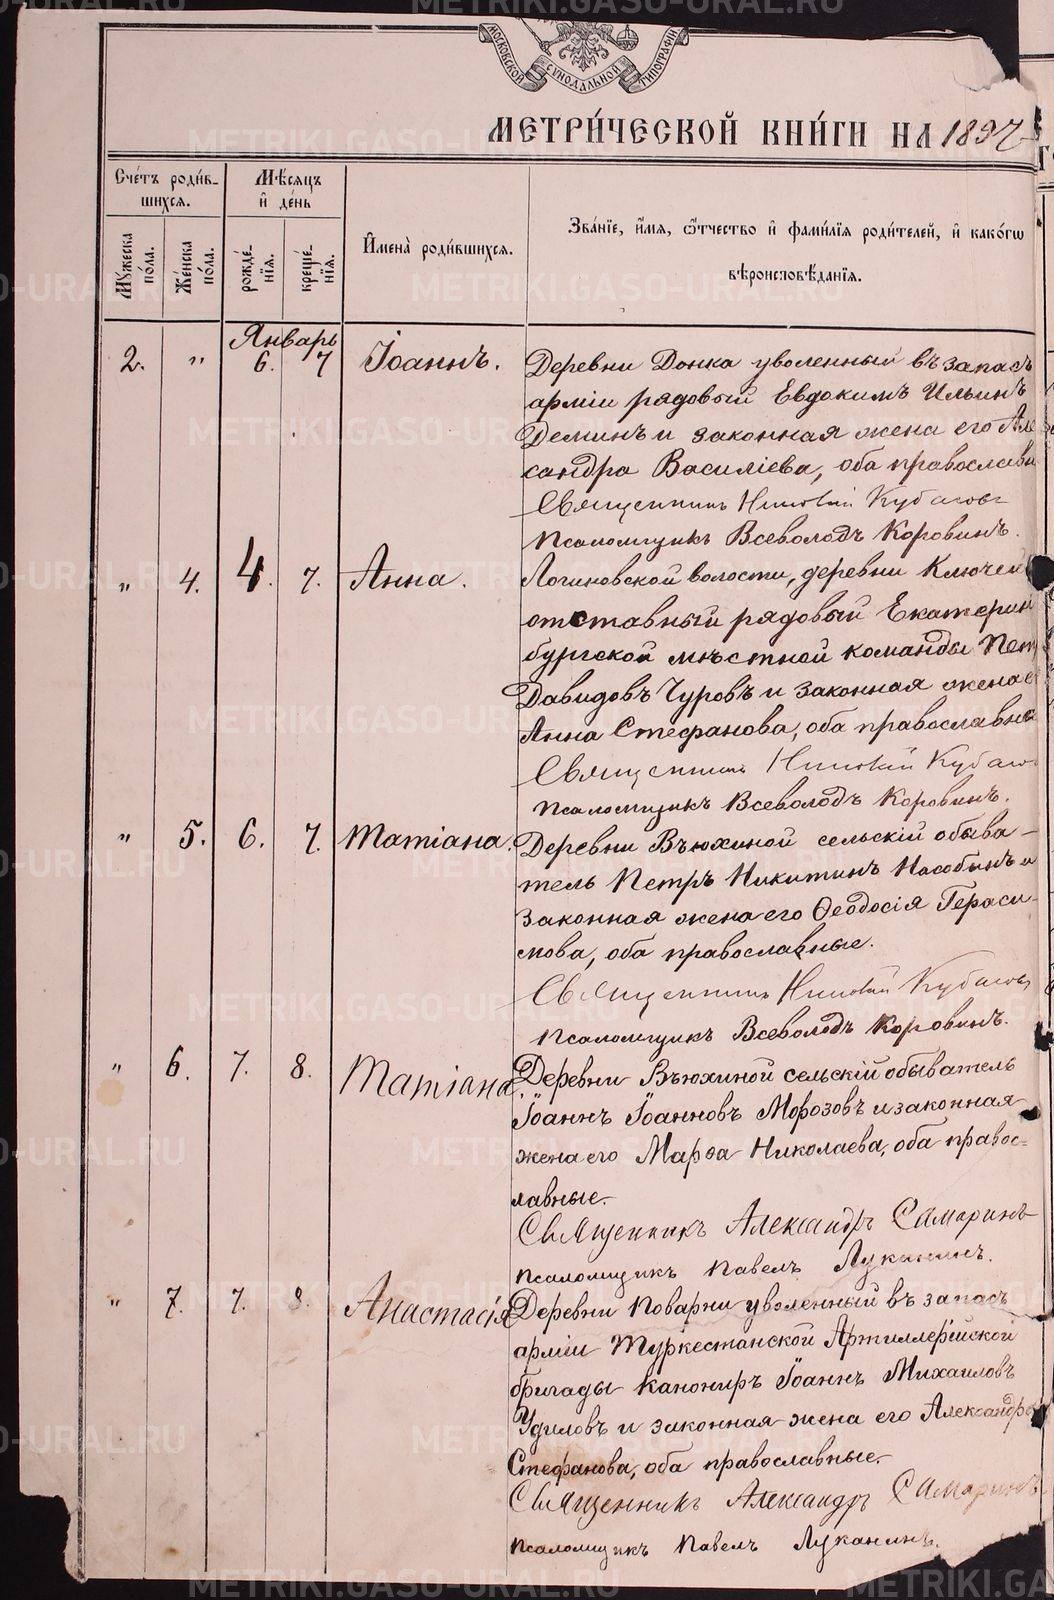 МОСКОВСКОЙ СУНОДАЛЬНОЙ ТИПОГРАФІИ
МЕТРИ́ЧЕСКОЙ КНИ́ГИ НА 1897
Сче́тъ роди́в-
шихся.
Мѣ́сяцъ
и҆ де́нь
Мꙋ́жеска по́ла.
Же́нска по́ла.
рожде́-
нїя.
креще́-
нїя.
И҆мена̀ роди́вшихся.
Зва́нїе, и҆́мя, ѻ҆́тчество и҆ фами́лїя роди́телей, и҆ како́гѡ
вѣроисповѣ́данїя.
Январь
2. „ 6. 7 Іоаннъ. Деревни Донка уволенный въ запасъ
арміи рядовый Евдокимъ Ильинъ
Деминъ и законная жена его Але
сандра Василіева, оба православн
Священникъ Николай Кубасовъ
Псаломщикъ Всеволодъ Коровинъ.
„ 4. 4. 7. Анна. Логиновской волости, деревни Ключей
отставный рядовый Екатерин
бургской мѣстной команды Петр
Давидовъ Чуровъ и законная жена е
Анна Стефанова, оба православн
Священникъ Николай Кубасо
Псаломщикъ Всеволодъ Коровинъ.
„ 5. 6. 7. Татіана. Деревни Вьюхиной сельскій обыва-
тель Петръ Никитинъ Нособинъ и
законная жена его Ѳеодосія Гераси-
мова, оба православные.
Священникъ Николай Кубасовъ
Псаломщикъ Всеволодъ Коровинъ.
„ 6. 7. 8. Татіана. Деревни Вьюхиной сельскій обыватель
Іоаннъ Іоанновъ Морозовъ и законная
жена его Марѳа Николаева, оба правос-
лавные.
Священникъ Александръ Самаринъ
Псаломщикъ Павелъ Луканинъ.
„ 7. 7. 8. Анастасія Деревни Поварни уволенный въ запасъ
арміи Туркестанской Артиллерійской
бригады канониръ Іоаннъ Михаиловъ
Удиловъ и законная жена его Александра
Стефанова, оба православные.
Священникъ Александръ Самаринъ
Псаломщикъ Павелъ Луканинъ.
METRIKI.GASO-URAL.RU